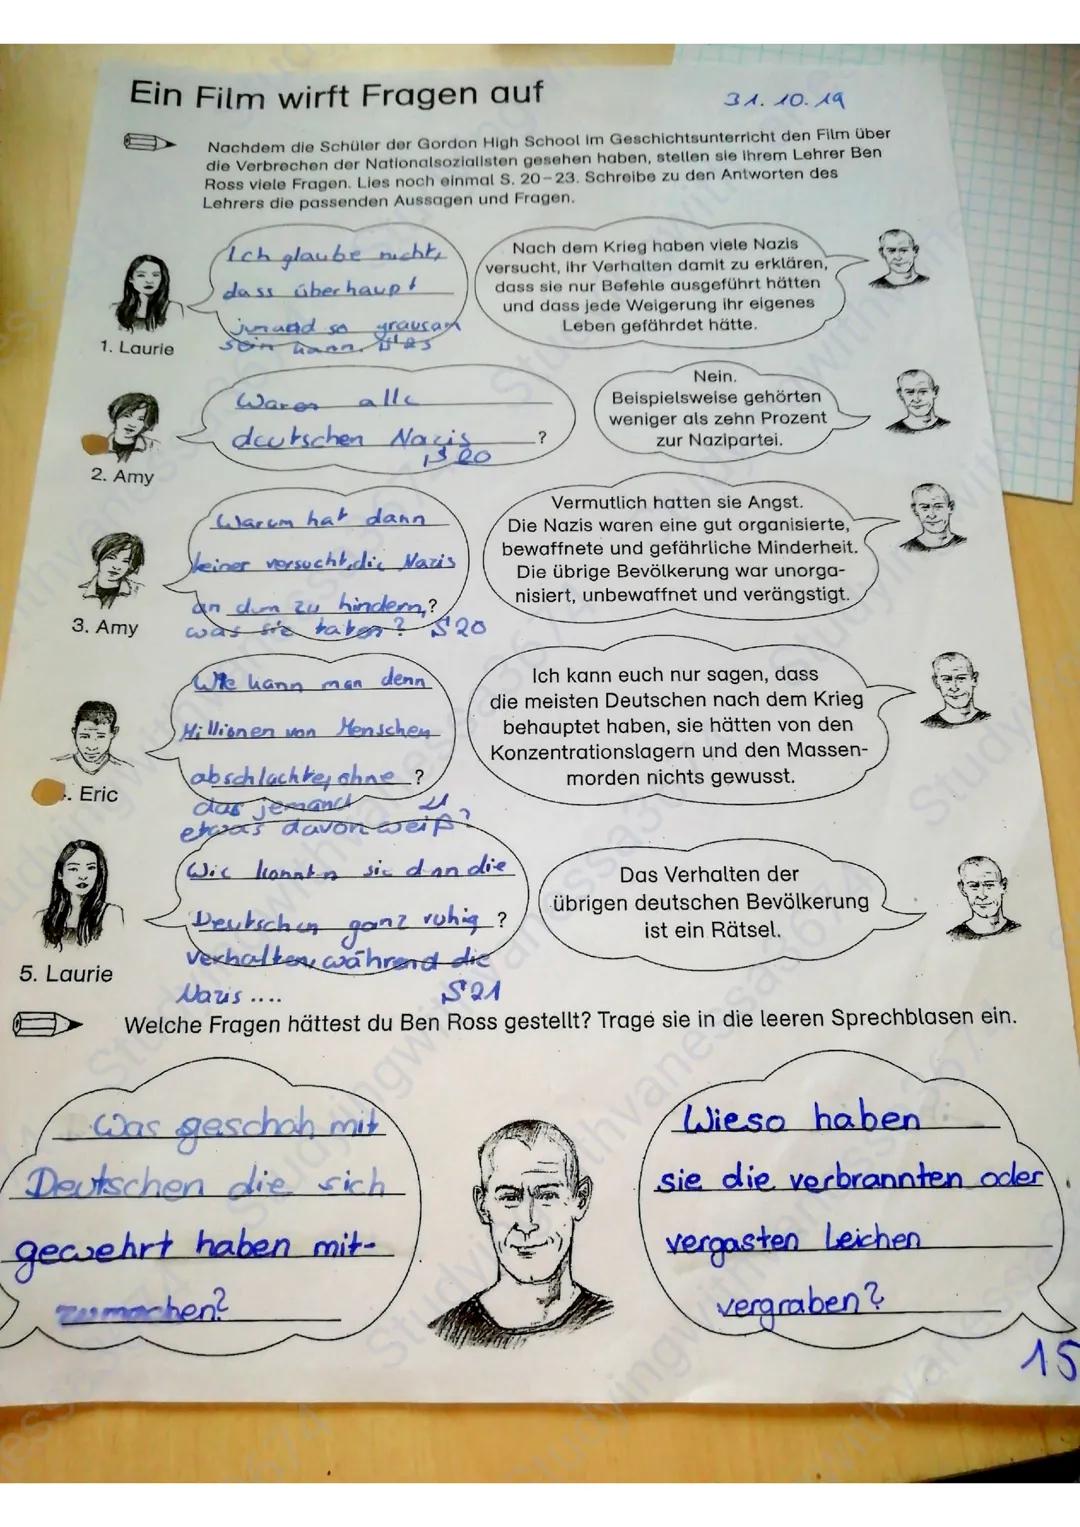 Ein Film wirft Fragen auf
31.10.19
Nachdem die Schüler der Gordon High School im Geschichtsunterricht den Film über
die Verbrechen der Nationalsozialisten gesehen haben, stellen sie ihrem Lehrer Ben
Ross viele Fragen. Lies noch einmal S. 20–23. Schreibe zu den Antworten des
Lehrers die passenden Aussagen und Fragen.
Ich glaube nicht,
dass überhaupt
jemand so grausam
sein kann.
1. Laurie
Nach dem Krieg haben viele Nazis
versucht, ihr Verhalten damit zu erklären,
dass sie nur Befehle ausgeführt hätten
und dass jede Weigerung ihr eigenes
Leben gefährdet hätte.
Waren alle
deutschen Nazis ?
S 20
2. Amy
Nein.
Beispielsweise gehörten
weniger als zehn Prozent
zur Nazipartei.
Warum hat dann
keiner versucht, die Nazis
an dem zu hindern, ?
was sie taten? S 20
3. Amy
Vermutlich hatten sie Angst.
Die Nazis waren eine gut organisierte,
bewaffnete und gefährliche Minderheit.
Die übrige Bevölkerung war unorga-
nisiert, unbewaffnet und verängstigt.
Wie kann man denn
Millionen von Menschen
abschlachte, ohne ?
das jemand
etwas davon weiß?
. Eric
Ich kann euch nur sagen, dass
die meisten Deutschen nach dem Krieg
behauptet haben, sie hätten von den
Konzentrationslagern und den Massen-
morden nichts gewusst.
Wie konnten sie dann die
Deutschen ganz ruhig ?
verhalten, während die
Nazis .... S 21
5. Laurie
Das Verhalten der
übrigen deutschen Bevölkerung
ist ein Rätsel.
Welche Fragen hättest du Ben Ross gestellt? Trage sie in die leeren Sprechblasen ein.
Was geschah mit
Deutschen die sich
gewehrt haben mit-
zumachen?
Wieso haben
sie die verbrannten oder
vergasten Leichen
vergraben?
15